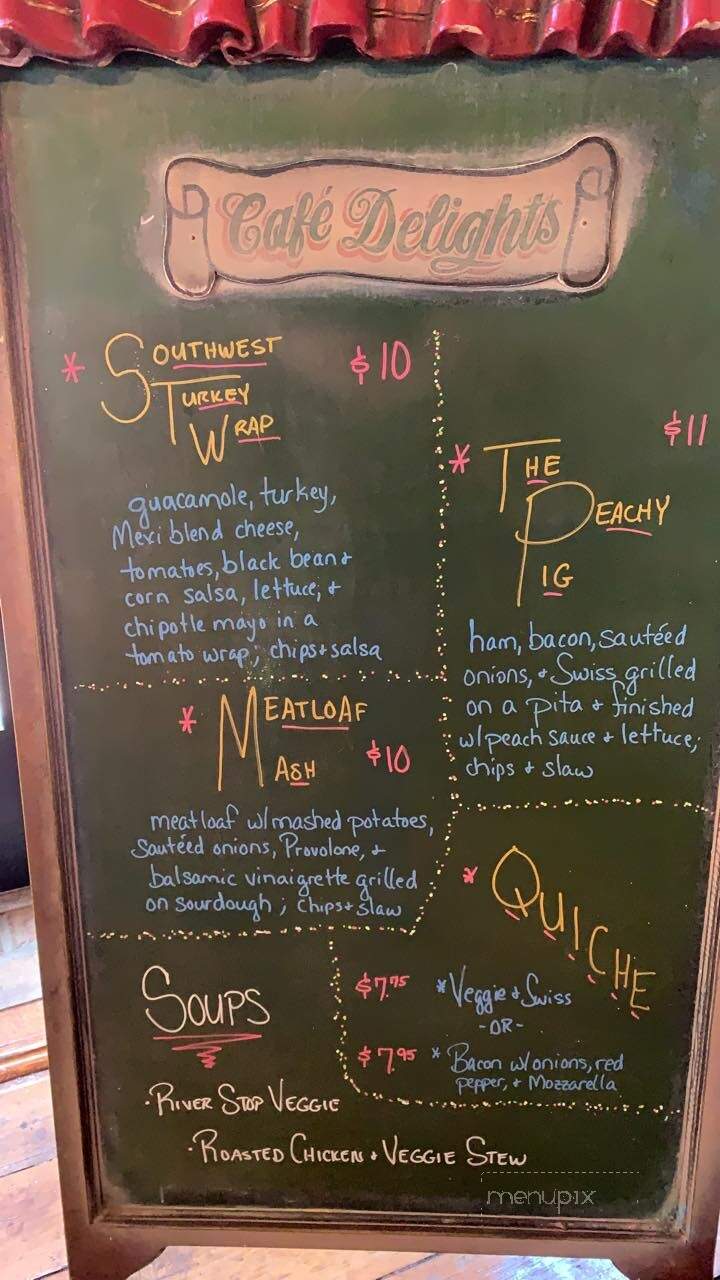 Café Delights
* SOUTHWEST $10
TURKEY
WRAP
guacamole, turkey,
Mexi blend cheese,
tomatoes, black bean +
corn salsa, lettuce, +
chipotle mayo in a
tomato wrap; chips + salsa
* MEATLOAF
MASH $10
meatloaf w/ mashed potatoes,
Sautéed onions, Provolone, +
balsamic vinaigrette grilled
on sourdough; chips + slaw
$11
* THE
PEACHY
PIG
ham, bacon, sautéed
onions, + Swiss grilled
on a pita + finished
w/ peach sauce + lettuce;
chips + slaw
* QUICHE
$7.75 * Veggie + Swiss
-OR-
$7.95 * Bacon w/ onions, red
pepper, + Mozzarella
SOUPS
· RIVER STOP VEGGIE
· ROASTED CHICKEN + VEGGIE STEW
menupix